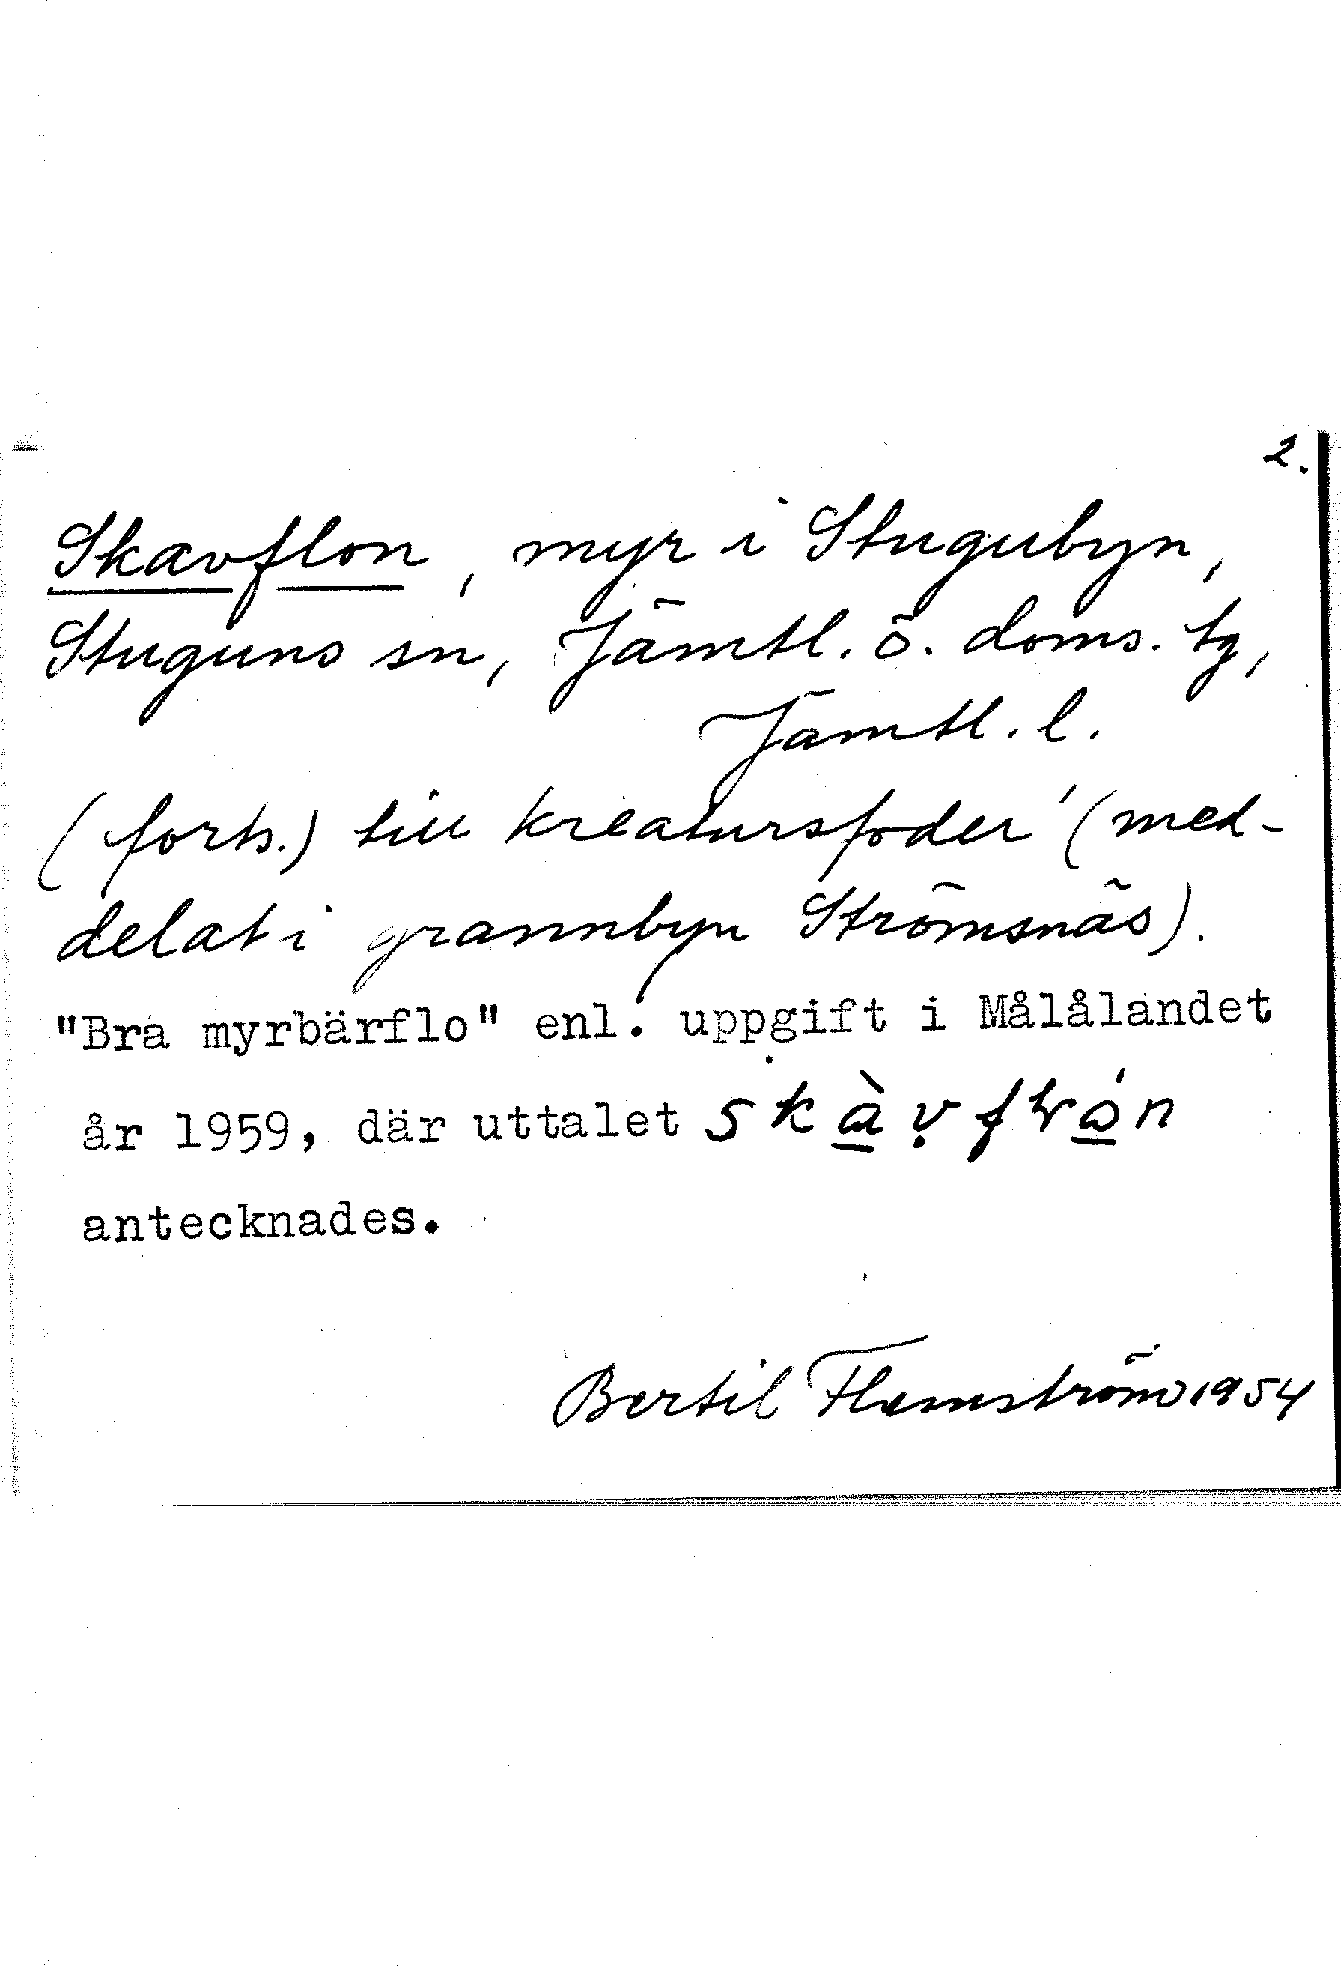 2.
Skavflon, myr i Stugubyn,
Stuguns sn, Jämtl. ö. doms. tg,
Jämtl. l.
(forts.) till kreatursfoder' (med-
delat i grannbyn Strömsnäs).
"Bra myrbärflo" enl. uppgift i Målålandet
år 1959, där uttalet
antecknades.
Bertil Flemström 1954